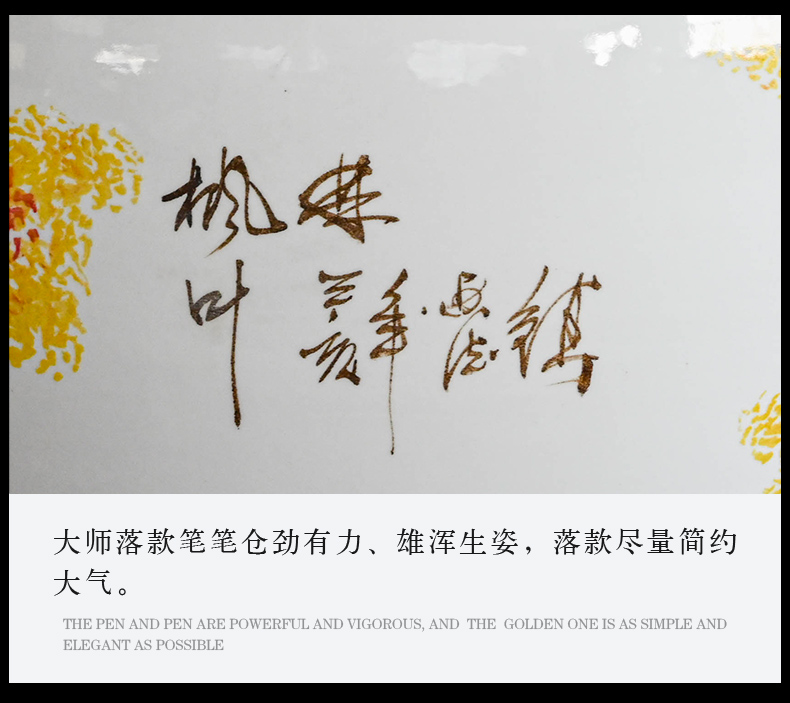 枫林
叶
大师落款笔笔仓劲有力、雄浑生姿，落款尽量简约
大气。
THE PEN AND PEN ARE POWERFUL AND VIGOROUS, AND THE GOLDEN ONE IS AS SIMPLE AND
ELEGANT AS POSSIBLE